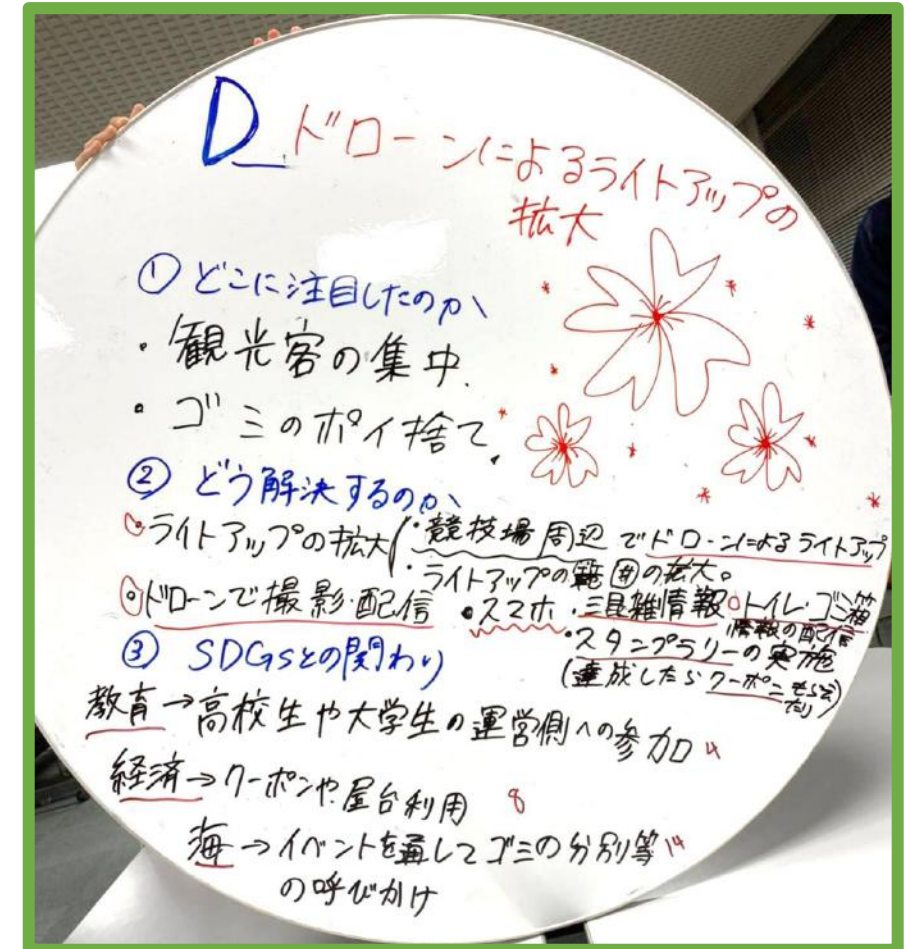 D_ドローンによるライトアップの
拡大
① どこに注目したのか、
・観光客の集中、
・ゴミのポイ捨て、
② どう解決するのか、
○ライトアップの拡大(・競技場周辺でドローンによるライトアップ
・ライトアップの範囲の拡大。
○ドローンで撮影・配信 ・スマホ・混雑情報○トイレ・ゴミ箱
情報の配信
・スタンプラリーの実施
(達成したらクーポンもらえ)
たり
③ SDGsとの関わり
教育→高校生や大学生の運営側への参加 4
経済→クーポンや、屋台利用 8
海→イベントを通してゴミの分別等 14
の呼びかけ